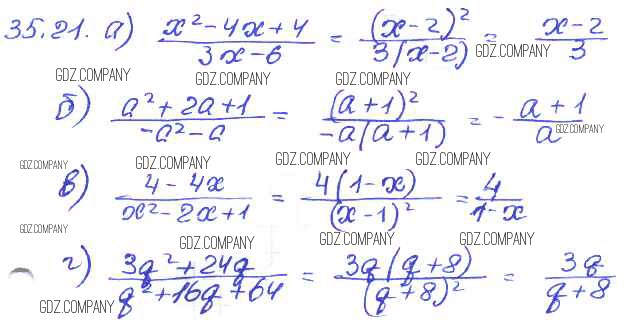 35.21. а) (x² - 4x + 4)/(3x - 6) = (x-2)²/(3(x-2)) = (x-2)/3
GDZ.COMPANY GDZ.COMPANY GDZ.COMPANY GDZ.COMPANY
б) (a² + 2a + 1)/(-a² - a) = (a+1)²/(-a(a+1)) = - (a+1)/a
GDZ.COMPANY
GDZ.COMPANY GDZ.COMPANY GDZ.COMPANY GDZ.COMPANY
в) (4 - 4x)/(x² - 2x + 1) = 4(1-x)/(x-1)² = 4/(1-x)
GDZ.COMPANY GDZ.COMPANY GDZ.COMPANY GDZ.COMPANY
г) (3q² + 24q)/(q² + 16q + 64) = 3q(q+8)/(q+8)² = 3q/(q+8)
GDZ.COMPANY